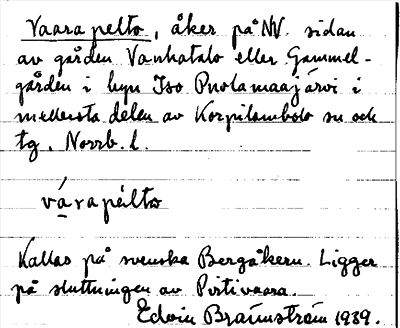 Vaarapelto, åker på NV. sidan
av gården Vanhatalo eller Gammel-
gården i byn Iso Puolamaajärvi i
mellersta delen av Korpilombolo sn och
tg. Norrb. l.
várapélto
Kallas på svenska Bergåkern. Ligger
på sluttningen av Pirtivaara.
Edvin Brännström 1939.